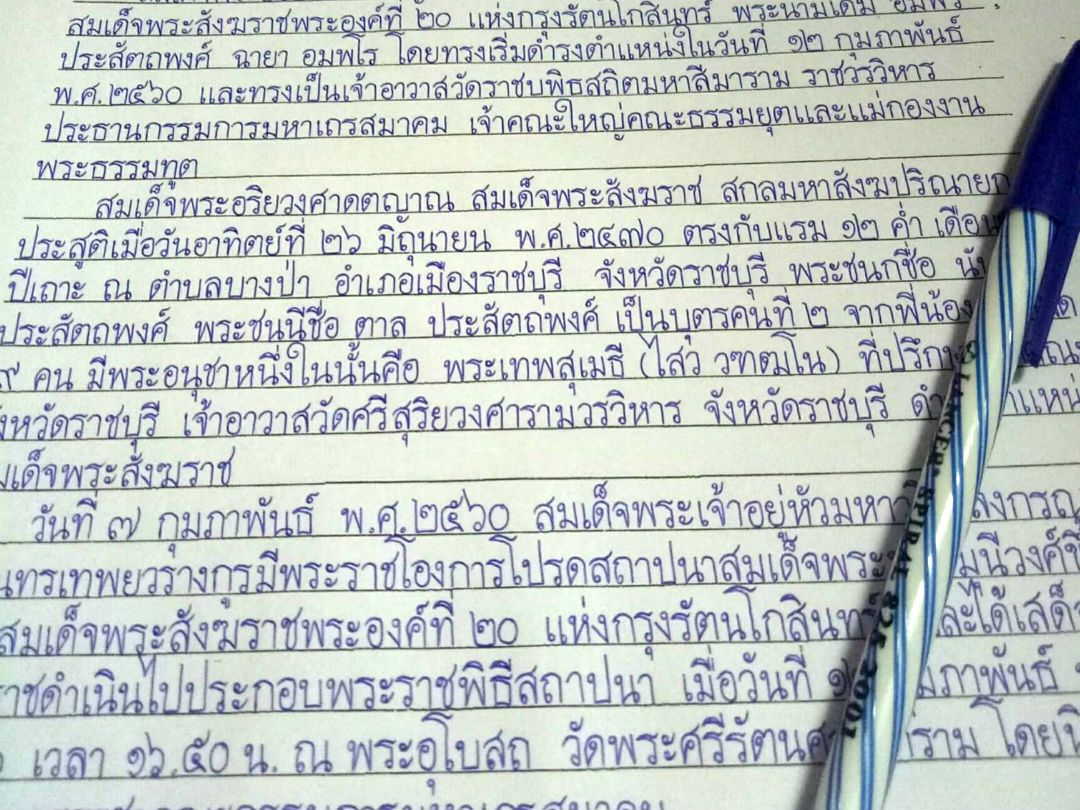 สมเด็จพระสังฆราชพระองค์ที่ ๒๐ แห่งกรุงรัตนโกสินทร์ พระนามเดิม อัมพร
ประสัตถพงศ์ ฉายา อมฺพโร โดยทรงเริ่มดำรงตำแหน่งในวันที่ ๑๒ กุมภาพันธ์
พ.ศ.๒๕๖๐ และทรงเป็นเจ้าอาวาสวัดราชบพิธสถิตมหาสีมาราม ราชวรวิหาร
ประธานกรรมการมหาเถรสมาคม เจ้าคณะใหญ่คณะธรรมยุตและแม่กองงาน
พระธรรมทูต
สมเด็จพระอริยวงศาคตญาณ สมเด็จพระสังฆราช สกลมหาสังฆปริณายก
ประสูติเมื่อวันอาทิตย์ที่ ๒๖ มิถุนายน พ.ศ.๒๔๗๐ ตรงกับแรม ๑๒ ค่ำ เดือน
ปีเถาะ ณ ตำบลบางป่า อำเภอเมืองราชบุรี จังหวัดราชบุรี พระชนกชื่อ
ประสัตถพงศ์ พระชนนีชื่อ ตาล ประสัตถพงศ์ เป็นบุตรคนที่ ๒ จากพี่น้อง
๙ คน มีพระอนุชาหนึ่งในนั้นคือ พระเทพสุเมธี (ไสว วฑฺฒโน) ที่ปรึก
งหวัดราชบุรี เจ้าอาวาสวัดศรีสุริยวงศารามวรวิหาร จังหวัดราชบุรี ดำ
มเด็จพระสังฆราช
วันที่ ๗ กุมภาพันธ์ พ.ศ.๒๕๖๐ สมเด็จพระเจ้าอยู่หัวมหาว ลงกรณ
นทรเทพยวรางกูรมีพระราชโองการโปรดสถาปนาสมเด็จพระ มุนีวงศ์ขึ้
สมเด็จพระสังฆราชพระองค์ที่ ๒๐ แห่งกรุงรัตนโกสินทร์ และได้เสด็จ
าชดำเนินไปประกอบพระราชพิธีสถาปนา เมื่อวันที่ ๑ มภาพันธ์
เวลา ๑๖.๕๐ น. ณ พระอุโบสถ วัดพระศรีรัตนศา าราม โดย
LANCER SPIRAL 825